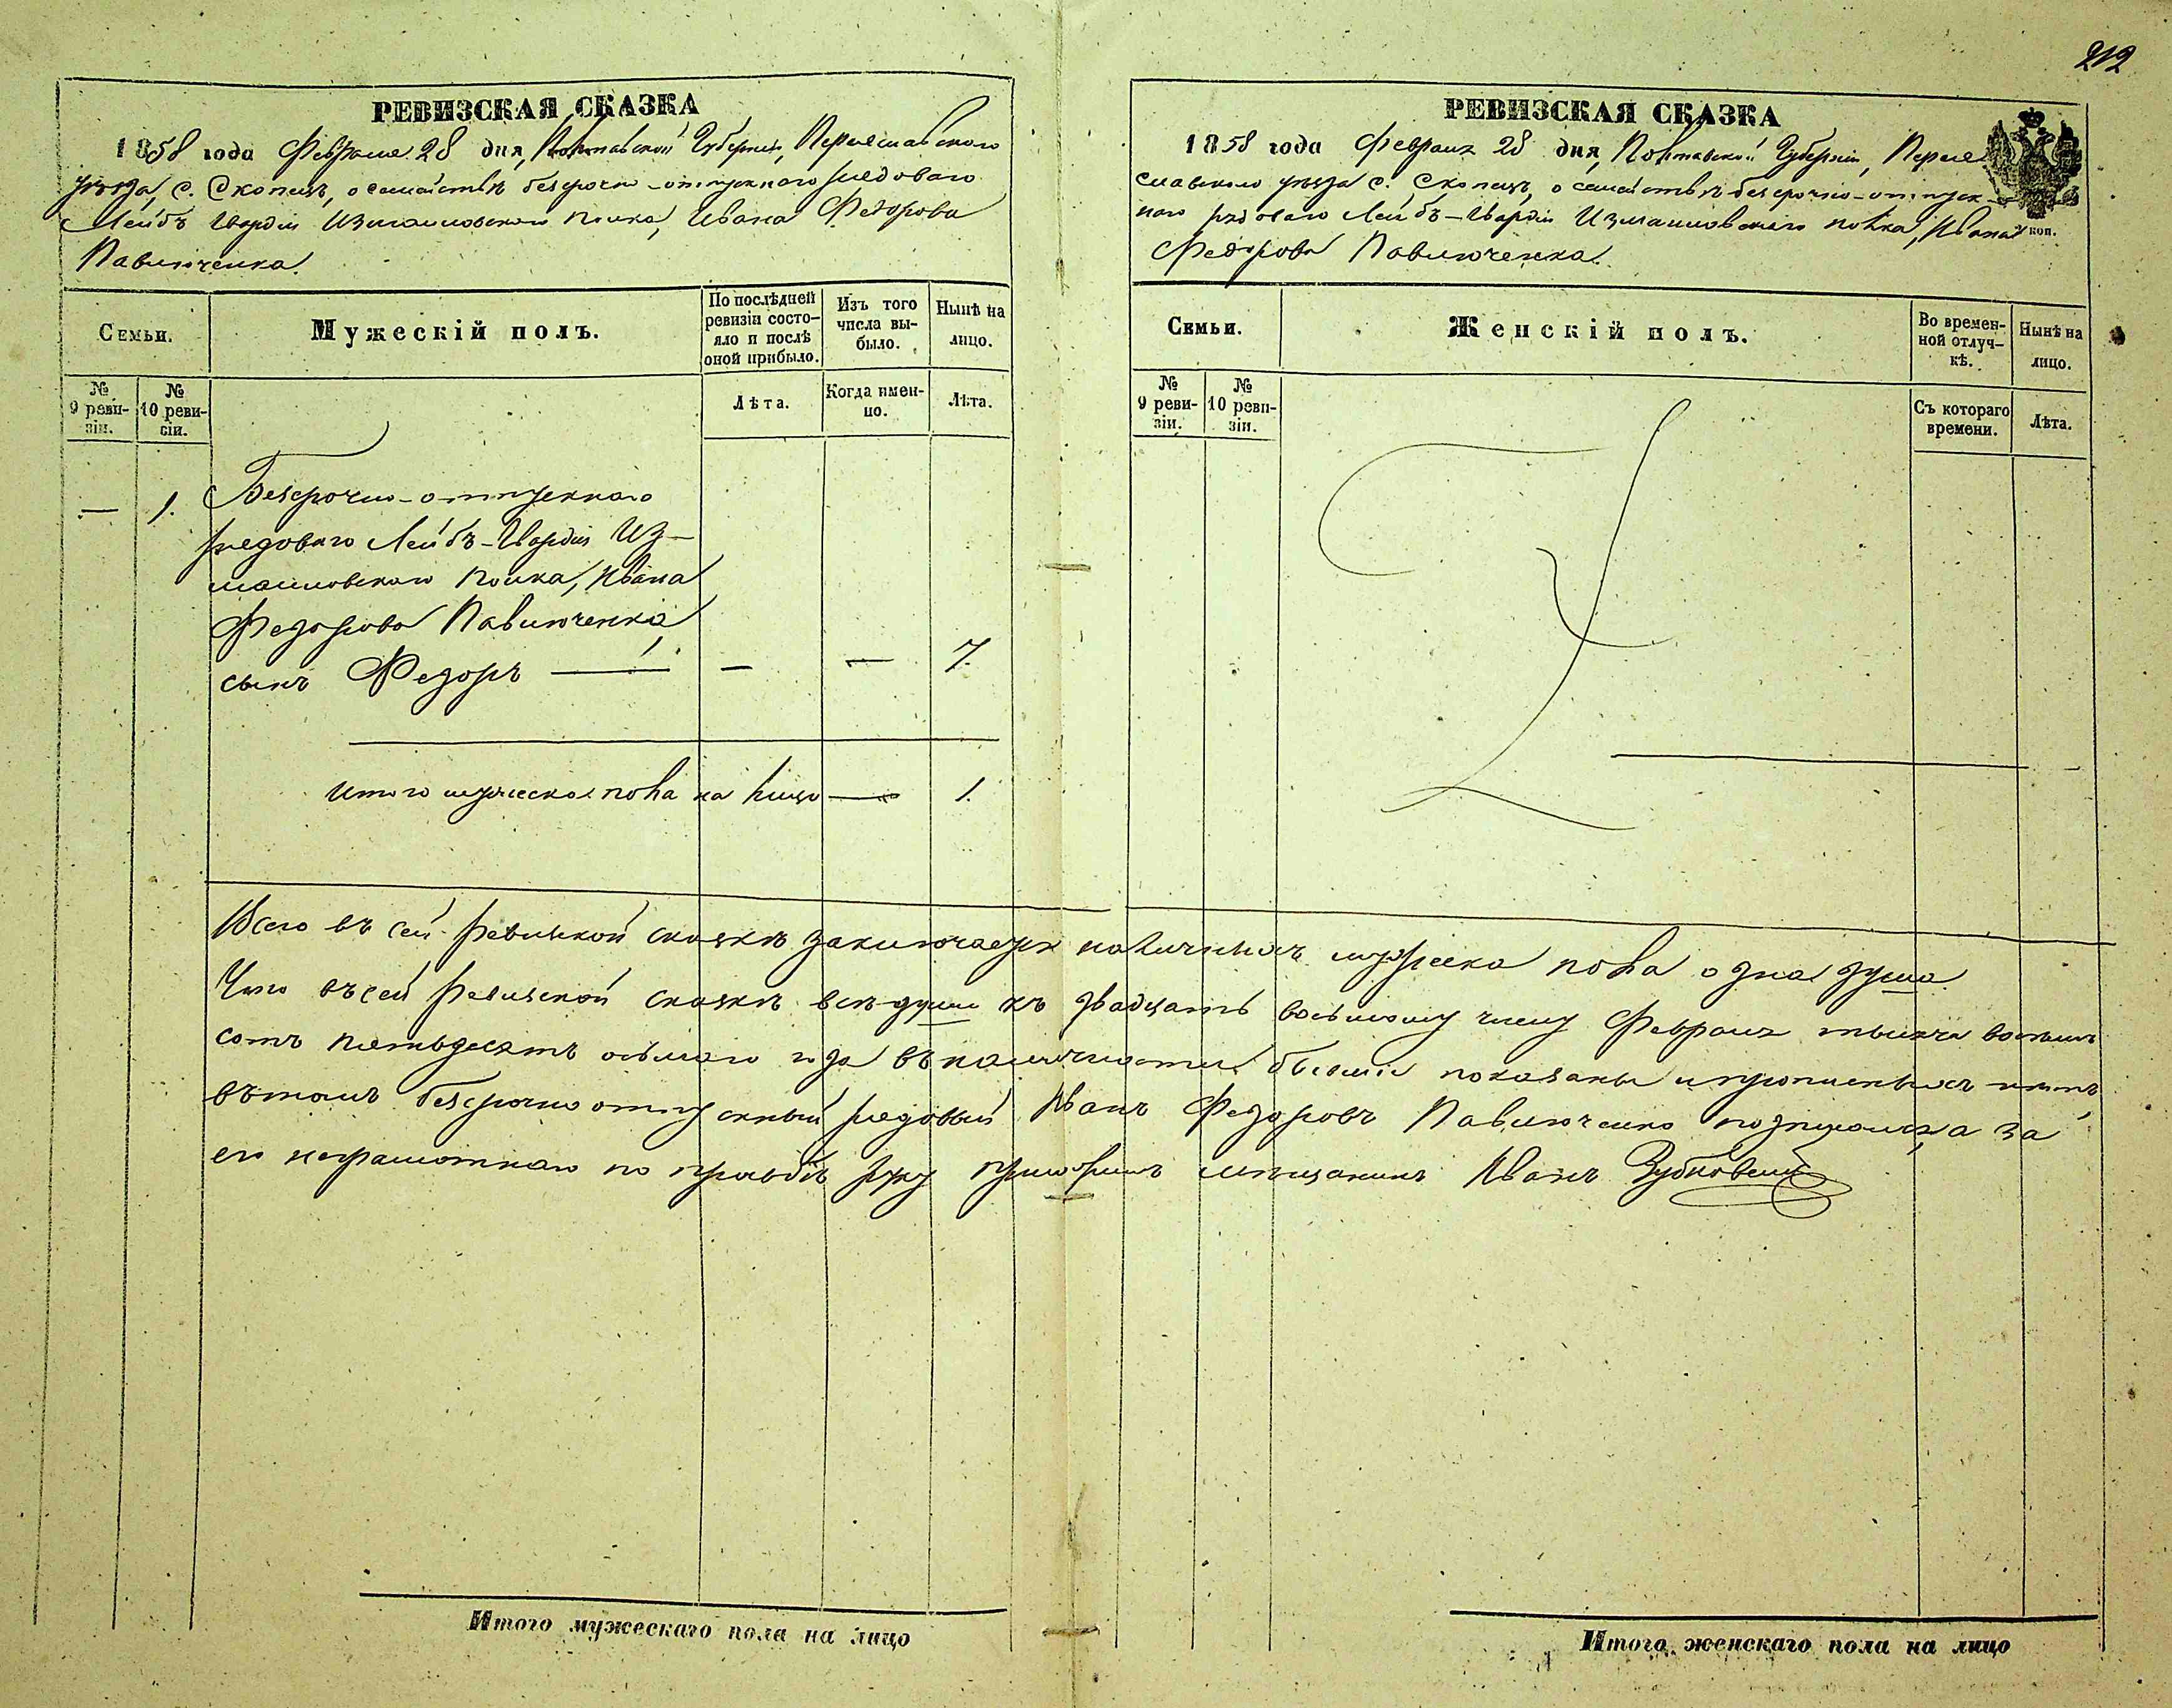 212
РЕВИЗСКАЯ СКАЗКА
1858 года Февраля 28 дня, Полтавской Губерніи, Переяславского
уѣзда, с. Скопецъ, о семействѣ безсрочно-отпускнаго рядоваго
Лейбъ Гвардіи Измайловскаго Полка, Ивана Федорова
Павлюченка.
Семьи.
Мужескій полъ.
По послѣдней
ревизіи состо-
яло и послѣ
оной прибыло.
Изъ того
числа вы-
было.
Нынѣ на
лицо.
№
9 реви-
зіи.
№
10 реви-
сіи.
Лѣта.
Когда имен-
но.
Лѣта.
— 1. Безсрочно-отпускнаго
рядоваго Лейбъ-Гвардіи Из-
майловскаго Полка, Ивана
Федорова Павлюченка,
сынъ Федоръ — — — 7.
Итого мужеска пола на лицо — 1.
РЕВИЗСКАЯ СКАЗКА
1858 года Февраля 28 дня, Полтавской Губерніи, Перея
славскаго уѣзда с. Скопецъ, о семействѣ безсрочно-отпуск-
наго рядоваго Лейбъ-Гвардіи Измайловскаго полка, Ивана
коп.
Федорова Павлюченка.
Семьи.
Женскій полъ.
Во времен-
ной отлуч-
кѣ.
Нынѣ на
лицо.
№
9 реви-
зіи.
№
10 реви-
зіи.
Съ котораго
времени.
Лѣта.
Всего въ сей ревизской сказкѣ заключается наличныхъ мужеска пола одна душа
Что въ сей ревизской сказкѣ всѣ души къ двадцать восьмому числу Февраля тысяча восемь
сотъ пятьдесятъ осьмаго года въ наличности бывшіе показаны и прописныхъ нѣтъ,
въ томъ безсрочно отпускный рядовый Иванъ Федоровъ Павлюченко подписался, а за
его неграмотнаго по прозьбѣ руку приложилъ мѣщанинъ Иванъ
Итого мужескаго пола на лицо
Итого женскаго пола на лицо